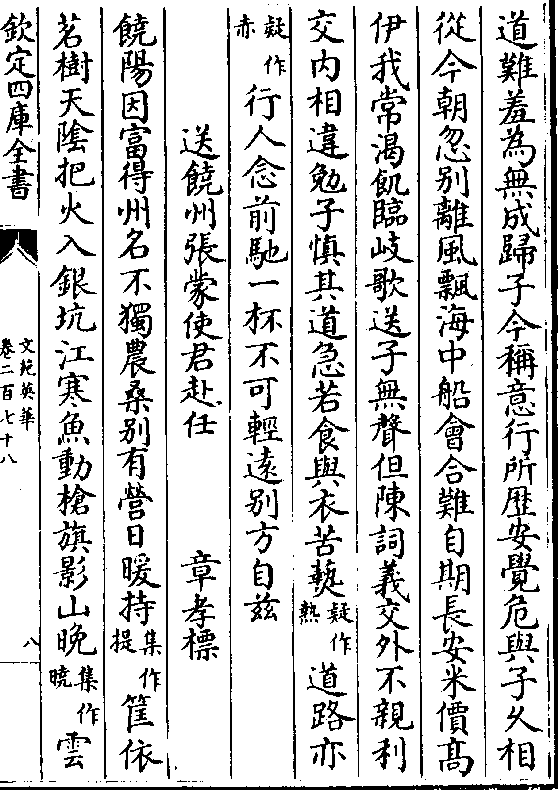 道難羞為無成歸子今稱意行所歴安覺危與子乆相
從今朝忽别離風飄海中船㑹合難自期長安米價髙
伊我常渴飢臨岐歌送子無聲但陳詞義交外不親利
交内相違勉子慎其道急若食與衣苦藝疑作熱道路亦
疑作赤行人念前馳一杯不可輕逺别方自兹
送饒州張蒙使君赴任 章孝標
饒陽因富得州名不獨農桑别有營日暖持集作提筐依
茗樹天陰把火入銀坑江寒魚動槍旗影山晚集作曉雲
欽定四庫全書
文苑英華
卷二百七十八
八